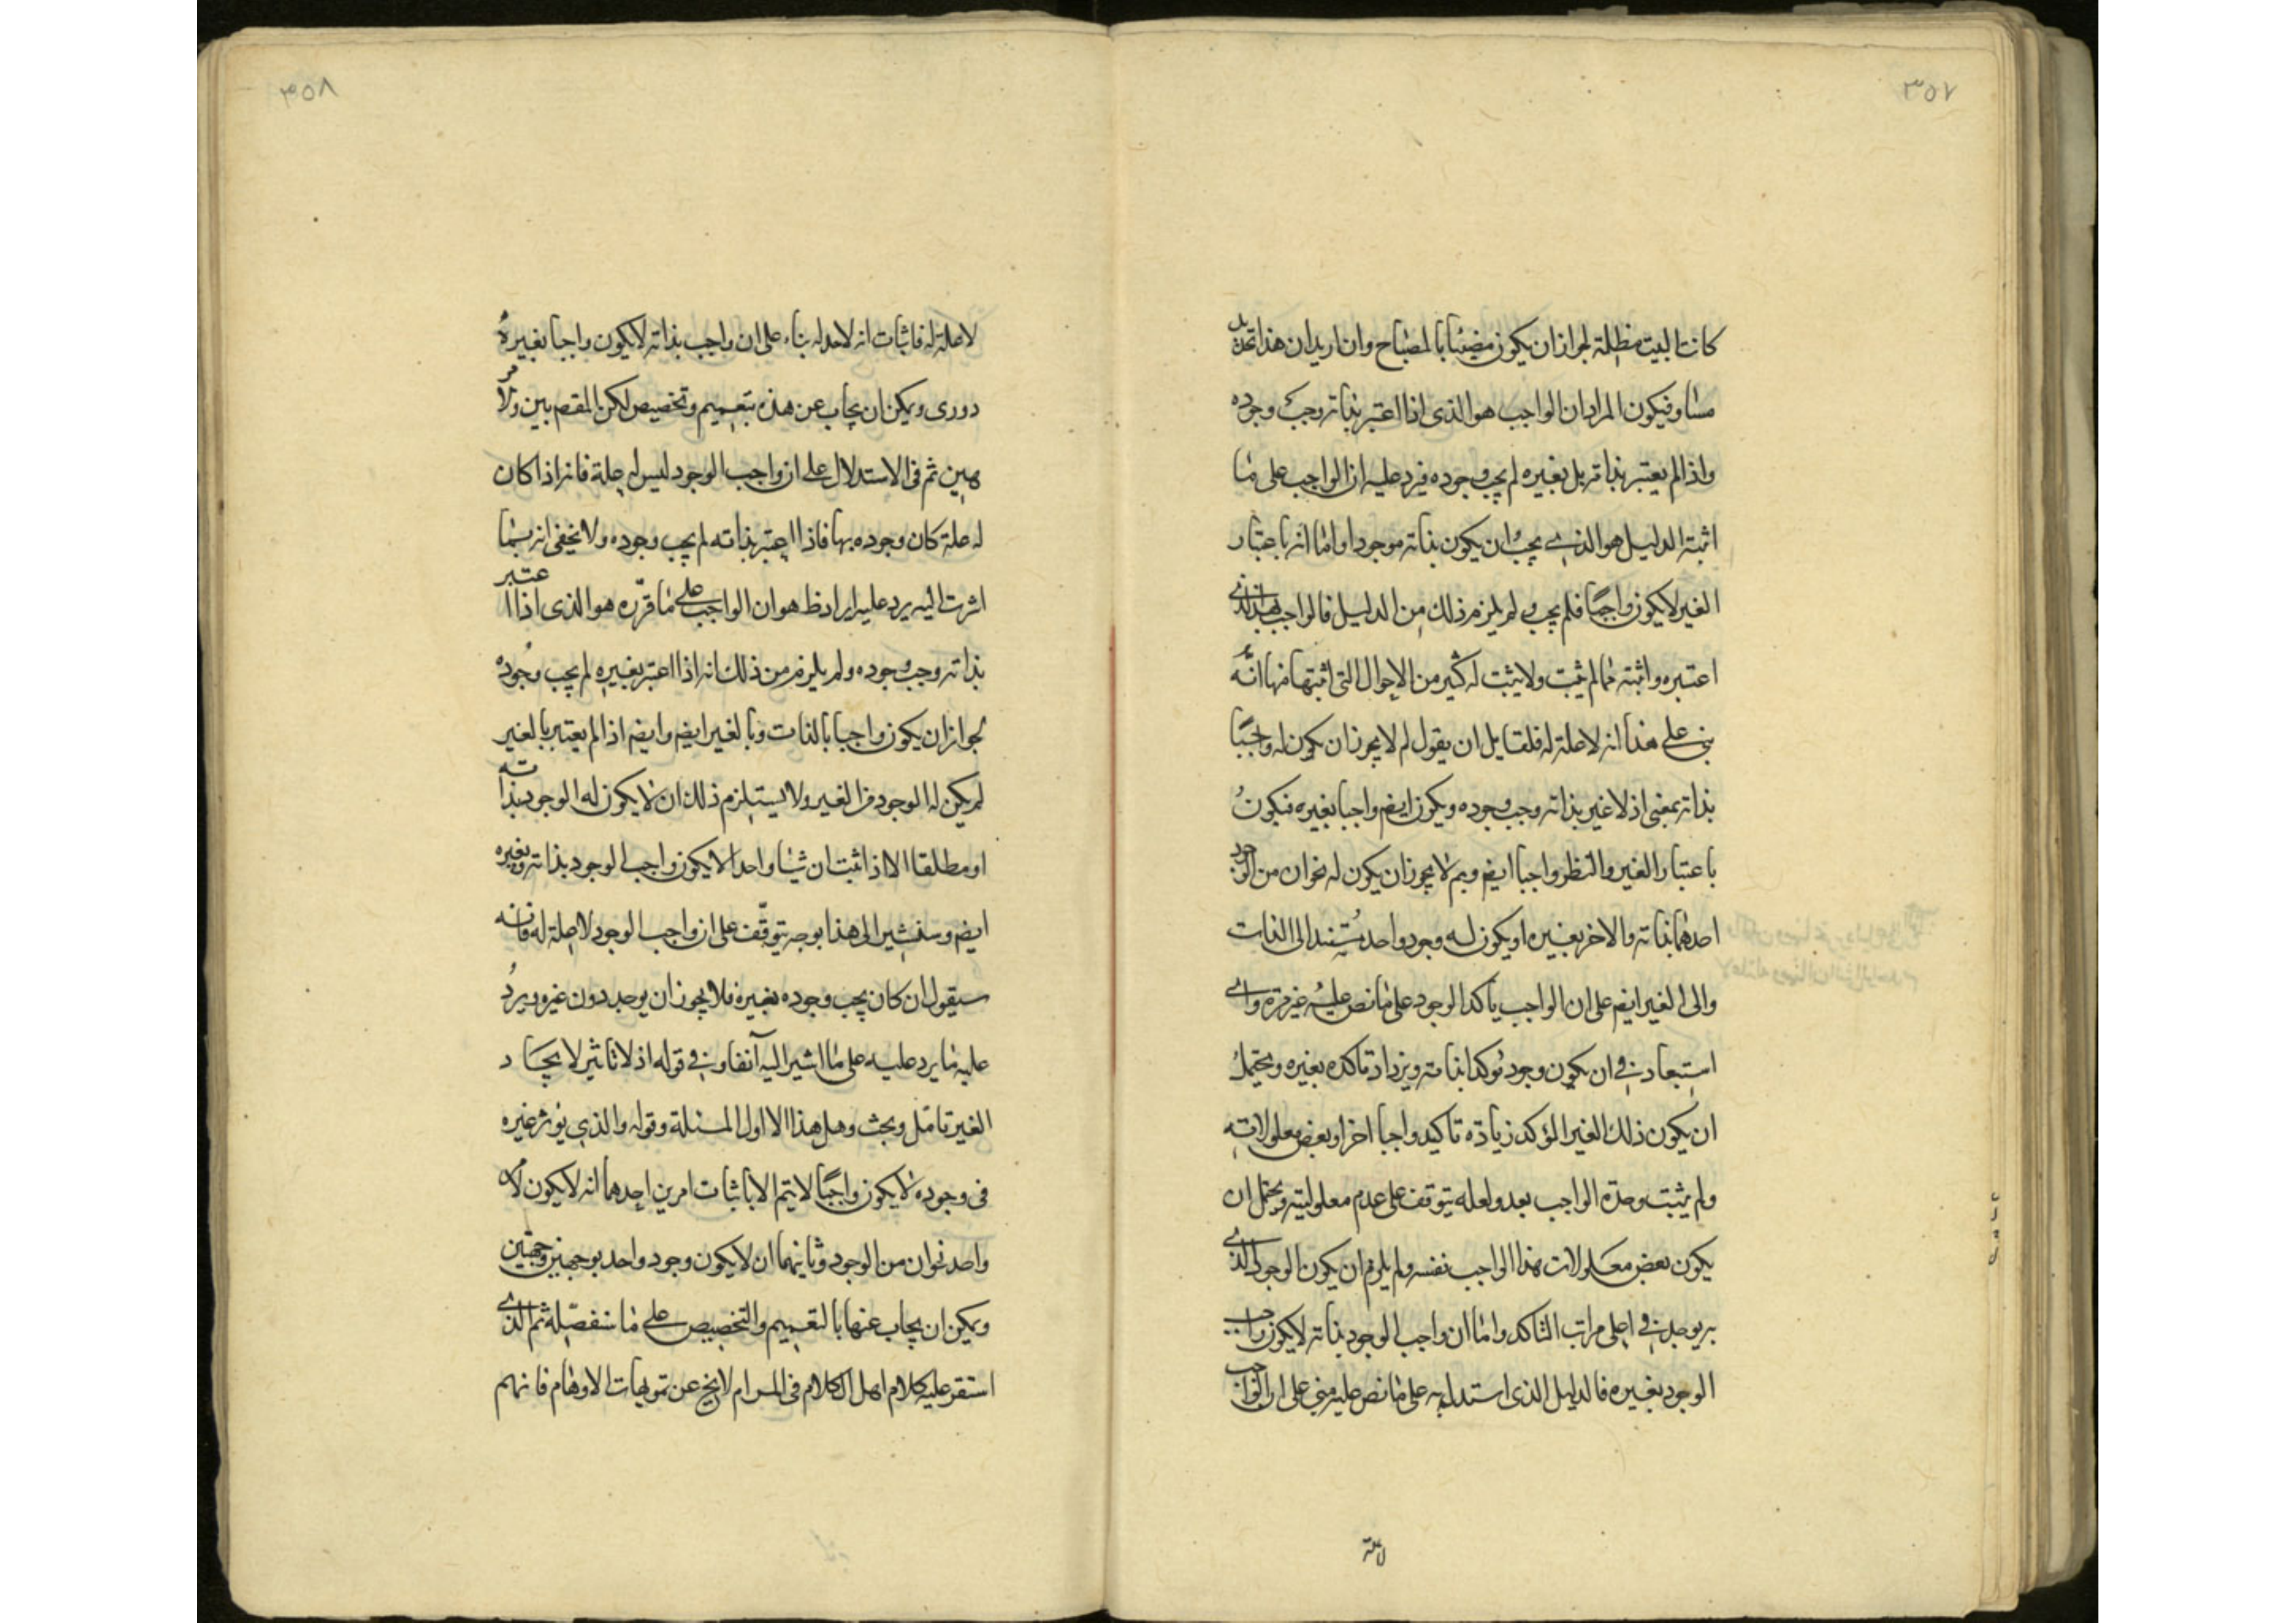 ٣٥٧
كانت البيت مظلمة لجواز ان يكون مضيئا بالمصباح وان اريد ان هذا
مساو فيكون المراد ان الواجب هو الذى اذا اعتبر بذاته وجب وجوده
واذا لم يعتبر بذاته بل بغيره لم يجب وجوده فيرد عليه ان الواجب على ما
اثبته الدليل هو الذى يجب ان يكون بذاته موجودا واما انه باعتبار
الغير لا يكون واجبا فلم يجب ولم يلزم ذلك من الدليل فالواجب الذى
اعتبره واثبته مما لم يثبت ولا يثبت له كثير من الاحوال التى اثبتها منها انه
بنى على هذا انه لا علة له فلقايل ان يقول لم لا يجوز ان يكون له واجبا
بذاته بمعنى اذ لا غير بذاته وجب وجوده ويكون ايضم واجبا بغيره فيكون
باعتبار الغير والنظر واجبا ايضم وبم لا يجوز ان يكون له نحوان من الوجود
احدهما بذاته والاخر بغيره او يكون له وجود واحد مستند الى الذات
والى الغير ايضم على ان الواجب يأكد الوجود على ما نص عليه غير مرة واى
استبعاد فى ان يكون وجود مؤكدا بذاته ويزداد تأكده بغيره ويحتمل
ان يكون ذلك الغير المؤكد زيادة تاكيد واجبا اخر او بعض معلولاته
ولم يثبت وحدة الواجب بعد ولعله يتوقف على عدم معلوليته ويحتمل ان
يكون بعض معلولات هذا الواجب نفسه ولم يلزم ان يكون الوجود الذى
به يوجد فى اعلى مراتب التاكد واما ان واجب الوجود بذاته لا يكون واجب
الوجود بغيره فالدليل الذى استدل به على ما نص عليه مبنى على ان الواجب
لا علة
٣٥٨
لا علة له فاثبات انه لا علة له بناء على ان واجب بذاته لا يكون واجبا بغيره
دورى ويمكن ان يجاب عن هذه بتعميم وتخصيص لكن المقصم بين ولا
هين ثم فى الاستدلال على ان واجب الوجود ليس له علة فانه اذا كان
له علة كان وجوده بها فاذا اعتبر بذاته لم يجب وجوده ولا يخفى انه بما
اشرت اليه يرد عليه ايراد ظ هو ان الواجب على ما قرره هو الذى اذا اعتبر
بذاته وجب وجوده ولم يلزم من ذلك انه اذا اعتبر بغيره لم يجب وجوده
لجواز ان يكون واجبا بالذات وبالغير ايضم وايضم اذا لم يعتبر بالغير
لم يكن له الوجود من الغير ولا يستلزم ذلك ان لا يكون له الوجود بذاته
او مطلقا الا اذا ثبت ان شيئا واحدا لا يكون واجب الوجود بذاته وبغيره
ايضم وسنشير الى هذا بوجه يتوقف على ان واجب الوجود لا علة له فانه
سيقول ان كان يجب وجوده بغيره فلا يجوز ان يوجد دون غيره ويرد
عليه ما يرد عليه على ما اشير اليه آنفا وفى قوله اذ لا تاثير لايجاد
الغير تامل وبحث وهل هذا الا اول المسئلة وقوله والذى يؤثر غيره
فى وجوده لا يكون واجبا لا يتم الا باثبات امرين احدهما انه لا يكون لامر
واحد نحوان من الوجود وثانيهما ان لا يكون وجود واحد بوجهين وجهتين
ويمكن ان يجاب عنها بالتعميم والتخصيص على ما سنفصله ثم الذى
استقر عليه كلام اهل الكلام فى المرام لا يخ عن تمويهات الاوهام فانهم